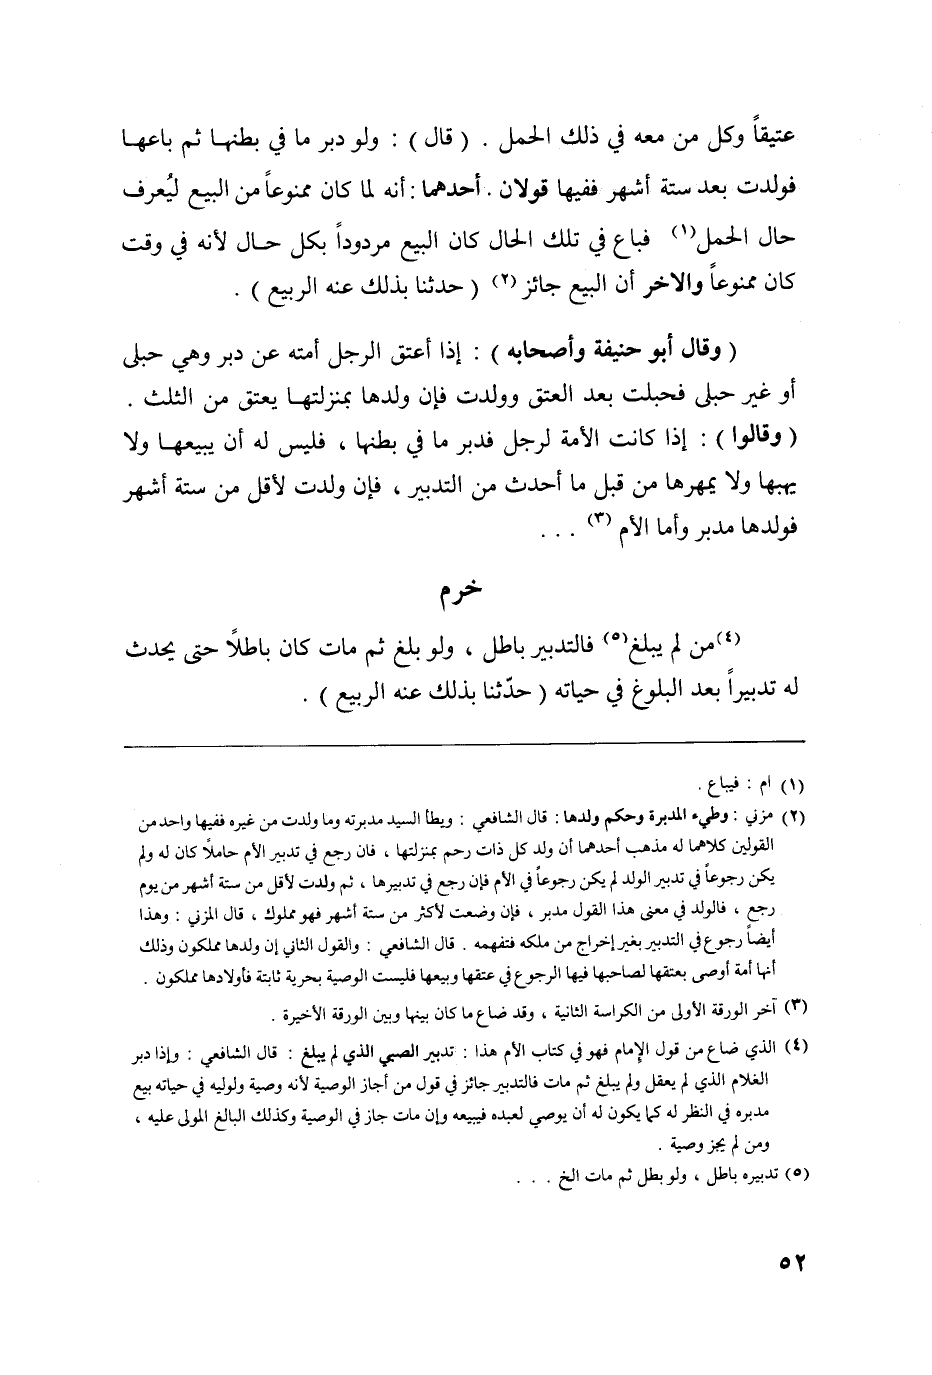 عتيقاً وكل من معه في ذلك الحمل . ( قال ) : ولو دبر ما في بطنها ثم باعها
فولدت بعد ستة أشهر ففيها قولان . أحدهما : أنه لما كان ممنوعاً من البيع ليُعرف
حال الحمل(١) فباع في تلك الحال كان البيع مردوداً بكل حال لأنه في وقت
كان ممنوعاً والاخر أن البيع جائز (٢) ( حدثنا بذلك عنه الربيع ) .
( وقال أبو حنيفة وأصحابه ) : إذا أعتق الرجل أمته عن دبر وهي حبلى
أو غير حبلى فحبلت بعد العتق وولدت فإن ولدها بمنزلتها يعتق من الثلث .
( وقالوا ) : إذا كانت الأمة لرجل فدبر ما في بطنها ، فليس له أن يبيعها ولا
يهبها ولا يمهرها من قبل ما أحدث من التدبير ، فإن ولدت لأقل من ستة أشهر
فولدها مدبر وأما الأم (٣) . . .
خرم
(٤)من لم يبلغ(٥) فالتدبير باطل ، ولو بلغ ثم مات كان باطلاً حتى يحدث
له تدبيراً بعد البلوغ في حياته ( حدّثنا بذلك عنه الربيع ) .
(١) ام : فيباع .
(٢) مزني : وطيء المدبرة وحكم ولدها : قال الشافعي : ويطأ السيد مدبرته وما ولدت من غيره ففيها واحد من
القولين كلاهما له مذهب أحدهما أن ولد كل ذات رحم بمنزلتها ، فان رجع في تدبير الأم حاملاً كان له ولم
يكن رجوعاً في تدبير الولد لم يكن رجوعاً في الأم فإن رجع في تدبيرها ، ثم ولدت لأقل من ستة أشهر من يوم
رجع ، فالولد في معنى هذا القول مدبر ، فإن وضعت لأكثر من ستة أشهر فهو مملوك ، قال المزني : وهذا
أيضاً رجوع في التدبير بغير إخراج من ملكه فتفهمه . قال الشافعي : والقول الثاني إن ولدها مملكون وذلك
أنها أمة أوصى بعتقها لصاحبها فيها الرجوع في عتقها وبيعها فليست الوصية بحرية ثابتة فأولادها مملكون .
(٣) آخر الورقة الأولى من الكراسة الثانية ، وقد ضاع ما كان بينها وبين الورقة الأخيرة .
(٤) الذي ضاع من قول الإمام فهو في كتاب الأم هذا : تدبير الصبي الذي لم يبلغ : قال الشافعي : وإذا دبر
الغلام الذي لم يعقل ولم يبلغ ثم مات فالتدبير جائز في قول من أجاز الوصية لأنه وصية ولوليه في حياته بيع
مدبره في النظر له كما يكون له أن يوصي لعبده فيبيعه وإن مات جاز في الوصية وكذلك البالغ المولى عليه ،
ومن لم يجز وصية .
(٥) تدبيره باطل ، ولو بطل ثم مات الخ . . .
٥٢